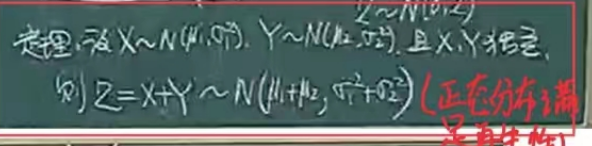 Z~N(0,2)
定理:设X~N(μ₁,σ₁²). Y~N(μ₂,σ₂²). 且X,Y独立,
则Z=X+Y~N(μ₁+μ₂, σ₁²+σ₂²) (正态分布满
足再生性)